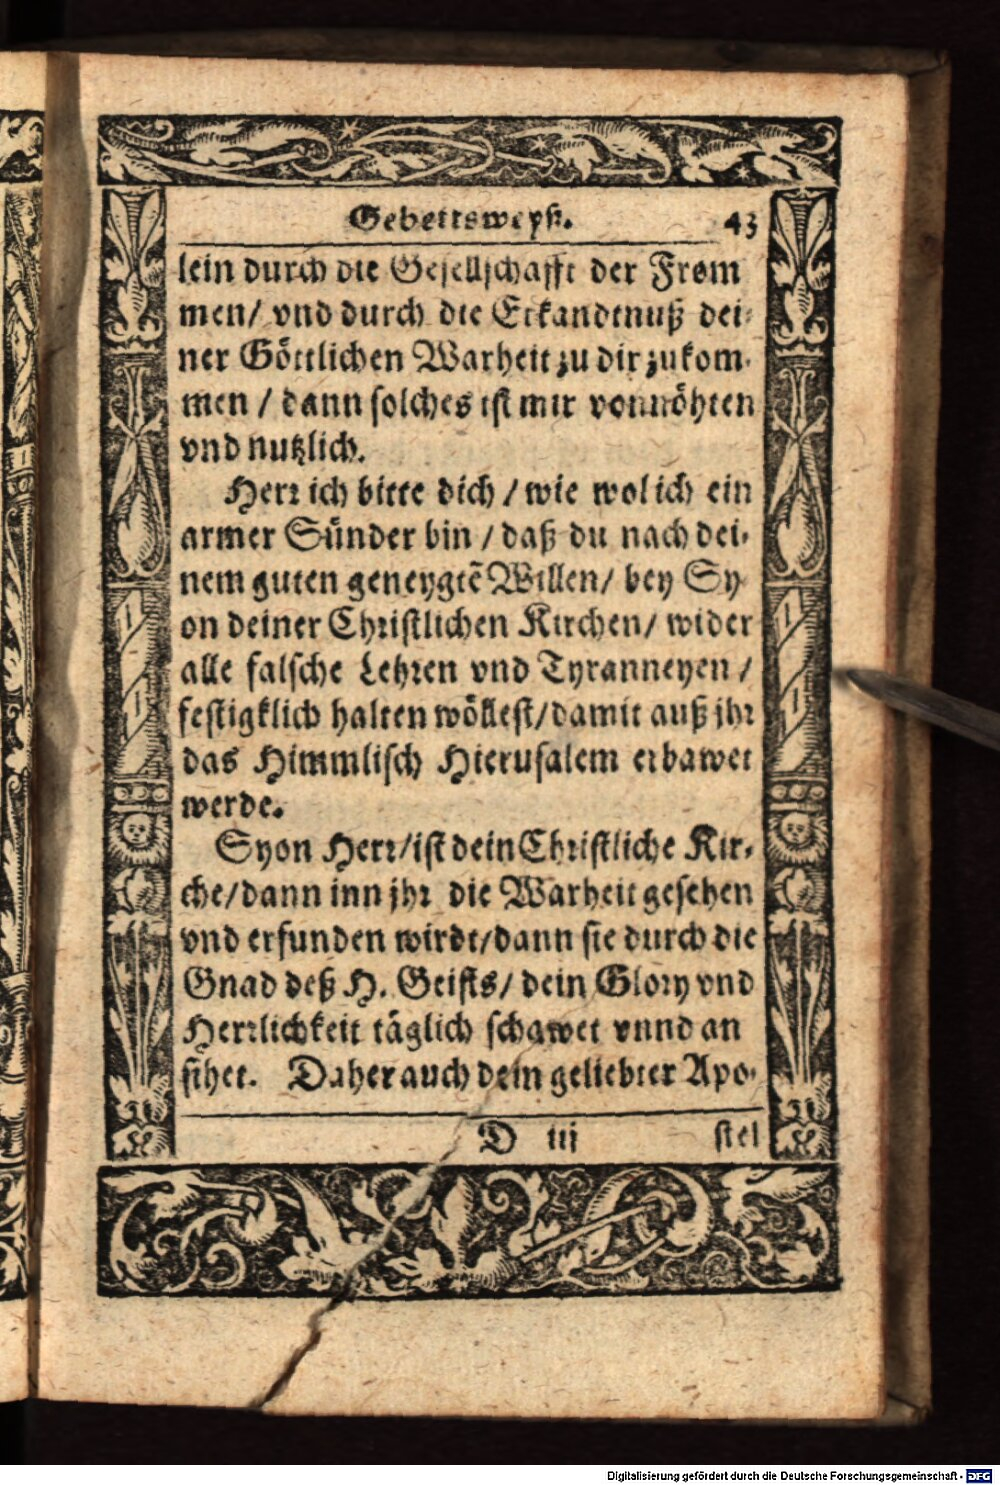 Gebettsweyß. 43
lein durch die Gesellschafft der From
men/ vnd durch die Erkandtnuß dei-
ner Göttlichen Warheit zu dir zukom-
men / dann solches ist mir vonnöhten
vnd nutzlich.
Herr ich bitte dich / wie wol ich ein
armer Sünder bin / daß du nach dei-
nem guten geneygtẽ Willen/ bey Sy-
on deiner Christlichen Kirchen/ wider
alle falsche Lehren vnd Tyranneyen /
festigklich halten wöllest/damit auß jhr
das Himmlisch Hierusalem erbawet
werde.
Syon Herr/ist dein Christliche Kir-
che/dann inn jhr die Warheit gesehen
vnd erfunden wirdt/dann sie durch die
Gnad deß H. Geists/ dein Glory vnd
Herrlichkeit täglich schawet vnnd an
sihet. Daher auch dein geliebter Apo-
D iij stel
Digitalisierung gefördert durch die Deutsche Forschungsgemeinschaft - DFG